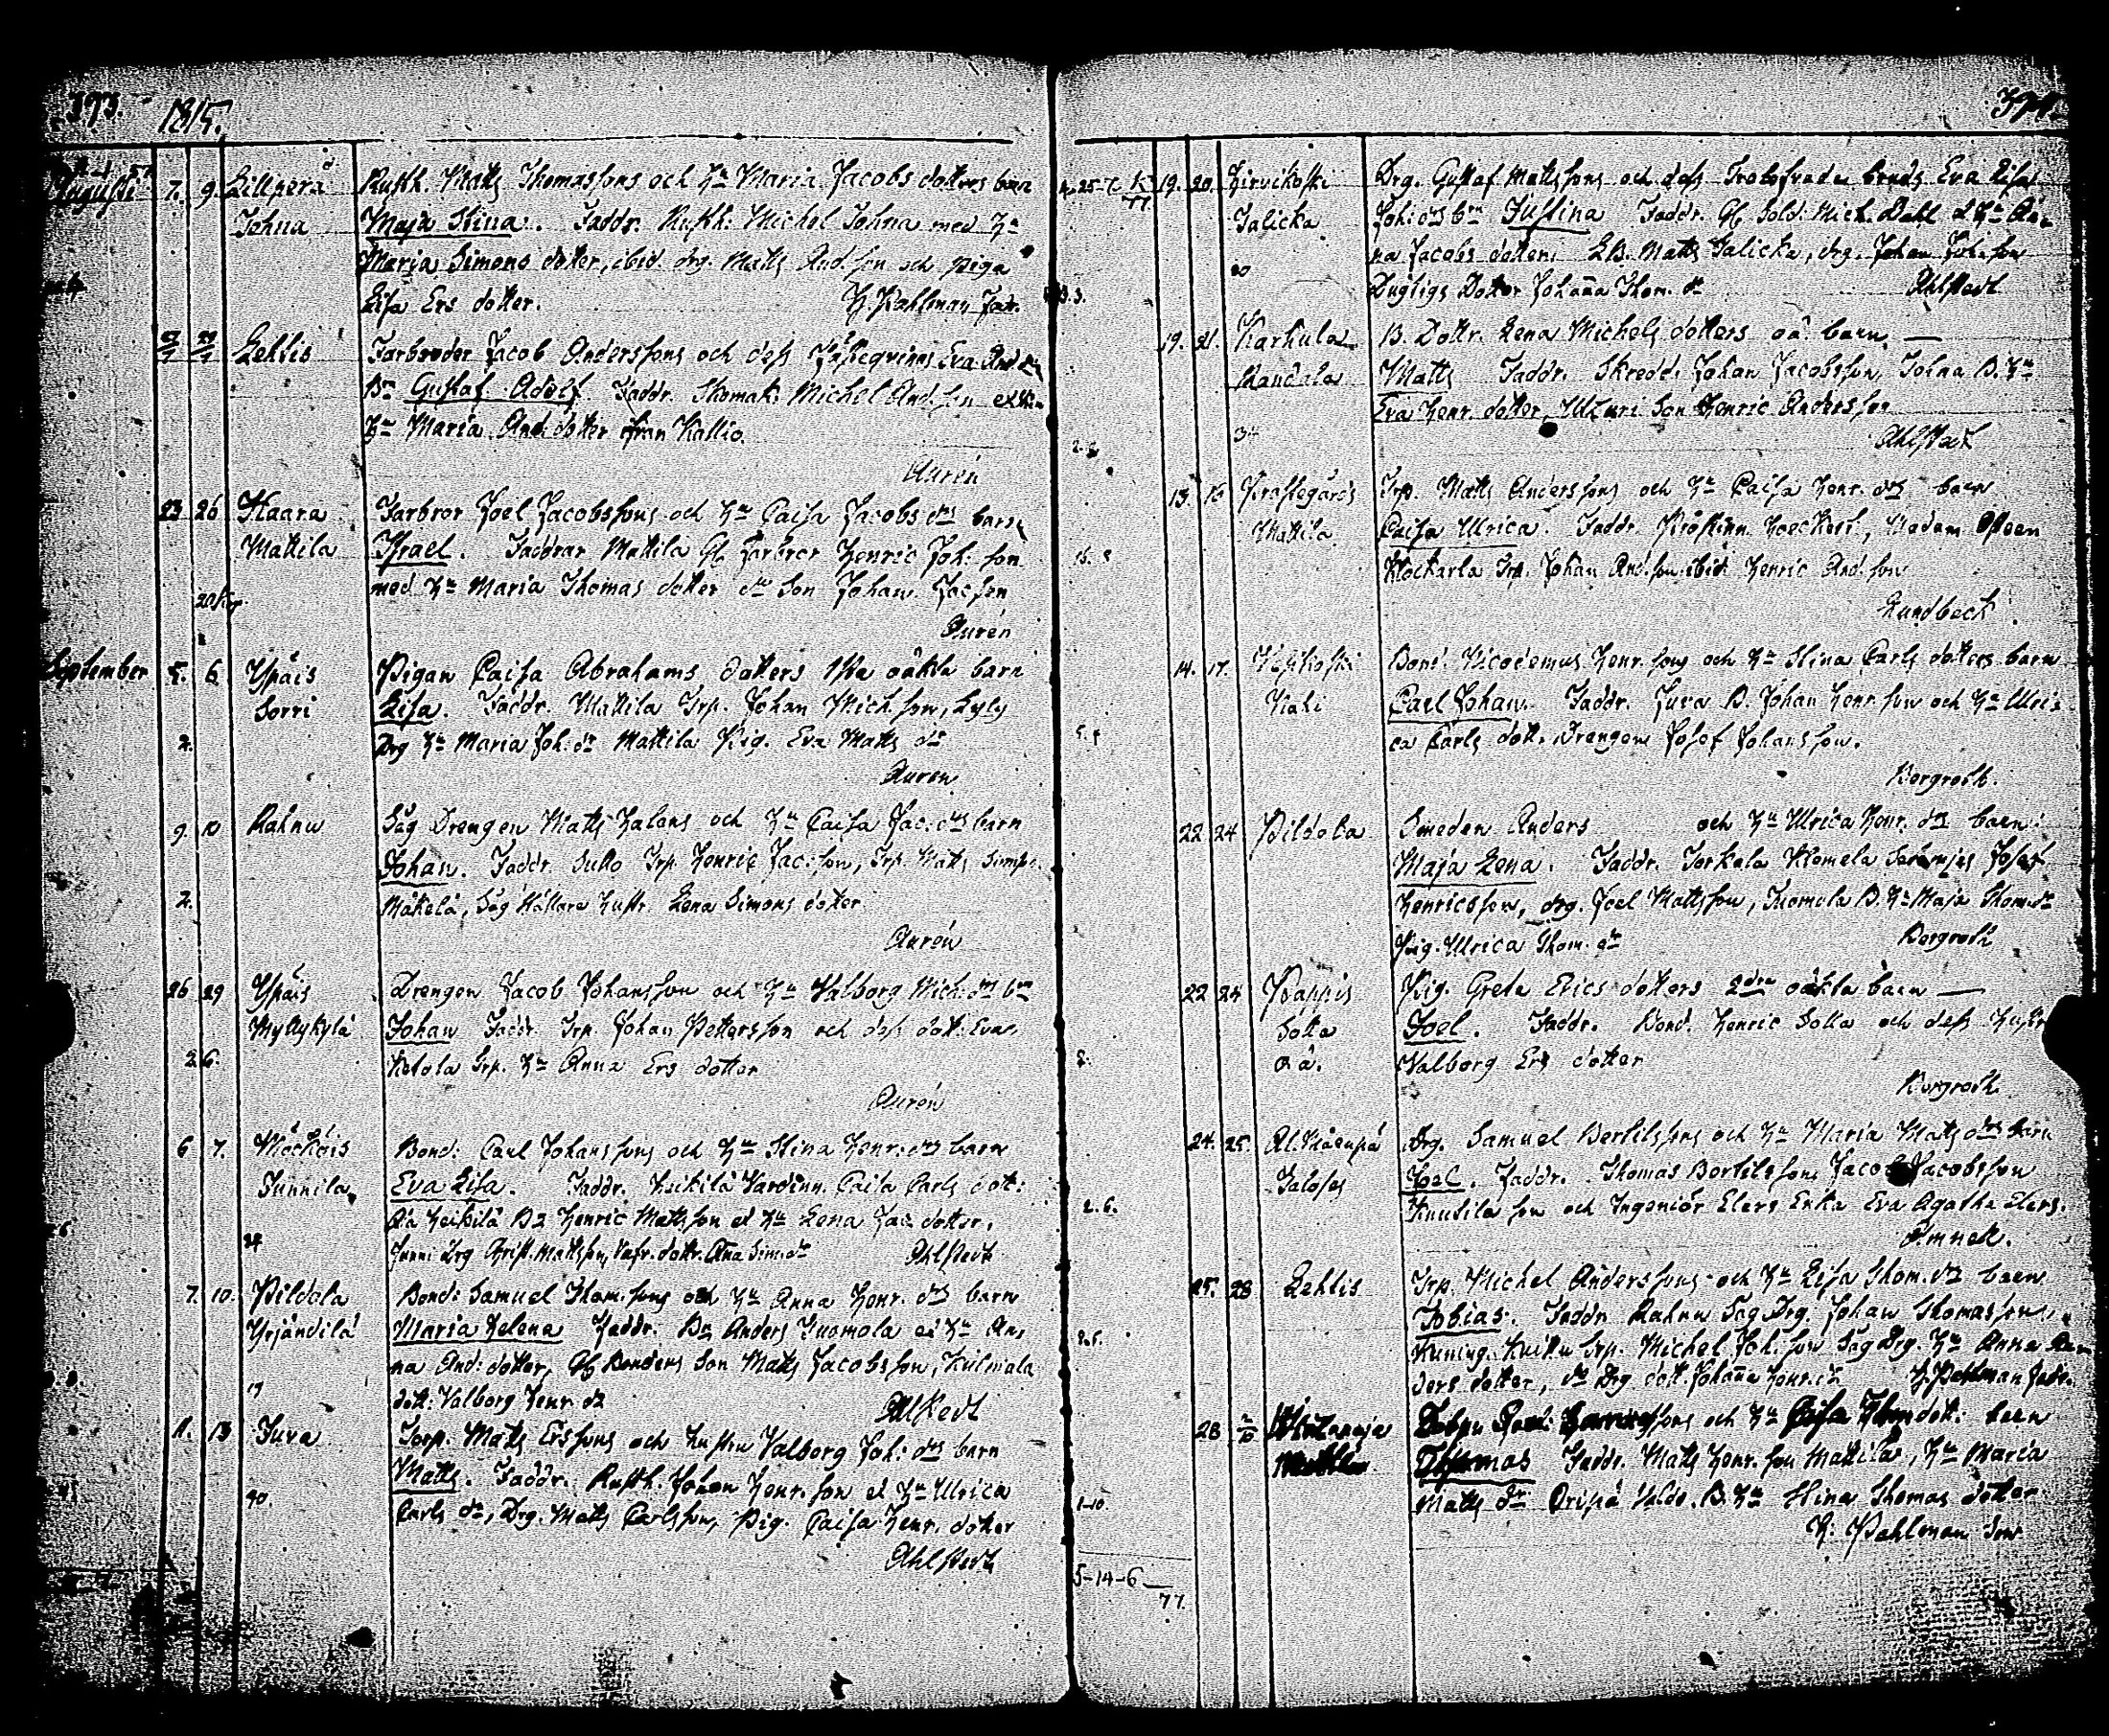 373. 1815.
Augusti 7. 9. Lillperä Rusth. Matts Thomassons och Hu Maria Jacobs dotters barn
Tohna Maja Stina. Faddr. Rusth: Michel Tohna med Hu
Maria Simons dotter, ibid. drg. Matts And.son och Piga
Lisa Ers dotter. H. Pahlman, Fadr.
Lehlis Farbroder Jacob Anderssons och dess Fästeqvinns Eva And. drs
Bn Gustaf Adolf. Faddr. Skomak: Michel And.son
Hu Maria And. dotter ifrån Kallio.
Aurén
23 26 Haara Farbror Joel Jacobssons och Hu Caisa Jacobs drs barn
Mattila Israel. Faddrar Mattila Gl. Farbror Henric Joh: son
med Hu Maria Thomas dotter dn Son Johan Jacson
Aurén
September 5. 6 Ypäis Pigan Caisa Abrahams dotters 1sta oäkta barn
Sorri Lisa. Faddr. Mattila Trp. Johan Mich.son, Lyly
2. Drg Hu Maria Joh. dr Mattila Pig. Eva Matts dr
Auren
9. 10 Rahnu Såg Drengen Matts Halens och Hu Caisa Jac. drs barn
Johan. Faddr. Sullo Trp. Henric Jac.son, Trp. Matts Simps.
2. Mäkelä, Såg Ställare Hustr. Lena Simons dotter
Aurén
26 29 Ypäis Drengen Jacob Johansson och Hu Valborg Mich. drs bn
Myllykylä Johan Faddr. Trp Johan Pettersson och dess dott. Eva
2.6. Ketola Trp. Hu Anna Ers dotter
Aurén
6 7. Möckäis Bond: Carl Johanssons och Hu Stina Henr. drs barn
Sunnila Eva Lisa. Faddr. Heikilä Värdinn. Caisa Carls dott:
Heikilä Bd Henric Mattsson et Hu Lena Jac dotter,
Junni Drg Christ. Mattsson, dottr. Ana Sim. dr Ahlstedt
7. 10. Pildola Bond: Samuel Thom.sons och Hu Anna Henr. drs barn
Yrjändilä Maria Helena Faddr. Bn Anders Tuomola et Hu An-
na And: dotter, Gl Bondens Son Matts Jacobsson, Hulmala
19 dott: Valborg Henr. dr Ahlstedt
11. 13 Juva Torp. Matts Erssons och Hustru Valborg Joh: drs barn
Matts. Faddr. Rusth. Johan Henr. son et Hu Ulrica
40. Carls dr, Drg. Matts Carlsson, Pig. Caisa Henr. dotter
Ahlstedt
19. 20. Hirvikoski Drg. Gustaf Mattssons och dess Trolofvade bruds Eva Lisa
Talicka Joh: drs bn Justina Faddr. Gl Sold: Mich. Dahl & Hu An-
na Jacobs dotter, LB. Matts Talicka, drg. Johan Joh. son
Dugligs Dotter Johanna Thom. dr Ahlstedt
19. 21. Karhula B. Dottr. Lena Michels dotters oä. barn
Randala Matts Faddr. Skredd. Johan Jacobsson, Tohna B. Hu
Eva Henr. dotter, Son Henric Andersson
Ahlstedt
13. 16 Prastegårds Trp. Matts Anderssons och Hu Caisa Henr. drs barn
Mattila Caisa Ulrica. Faddr. Pröfkinn Hoeckert, Madam Steen
Klockarla Trp. Johan And.son ibid: Henric And. son
Lundbeck
14. 17. Vesikoski Bond. Nicodemus Henr. sons och Hu Stina Carls dotters barn
Carl Johan. Faddr. Juva B. Johan Henr. son och Hu Ulri-
ca Carls dott. Drengen Josef Johansson.
Bergroth.
22 24 Pildola Smeden Anders och Hu Ulrica Henr. drs barn
Maja Lena. Faddr. Torkala Klemela Josef
Henricsson, drg. Joel Mattsson, Tuomola B. Hu Maja Thom. dr
Pig. Ulrica Thom. dr Bergroth
22 24 Pappis Pig. Greta Erics dotters 2dra oäkta barn
Sotta Joel. Faddr. Bond. Henric Sotta och dess Hustr
oä. Valborg Ers dotter
Bergroth.
24. 25. Drg. Samuel Bertilssons och Hu Maria Matts drs barn
Joel. Faddr. Thomas Bertilsson, Jacob Jacobsson
Knutila son och Ingeniör Elers Enka Eva Agatha Elers.
25. 28 Lehlis Trp. Michel Anderssons och Hu Lisa Thom. drs barn
Tobias. Faddr. Rahnu Såg Drg. Johan Thomasson,
Trp. Michel Joh. son Såg Drg. Hu Anna An-
ders dotter, dn Drg dott. Johanna Henr. dr H. Pahlman Fadr.
28 sons och Hu Caisa dott: barn
Thomas Faddr. Matts Henr. son Mattila, Hu Maria
Matts dr Oripä B. Hu Stina Thomas dotter
H. Pahlman
5-14-6
77.